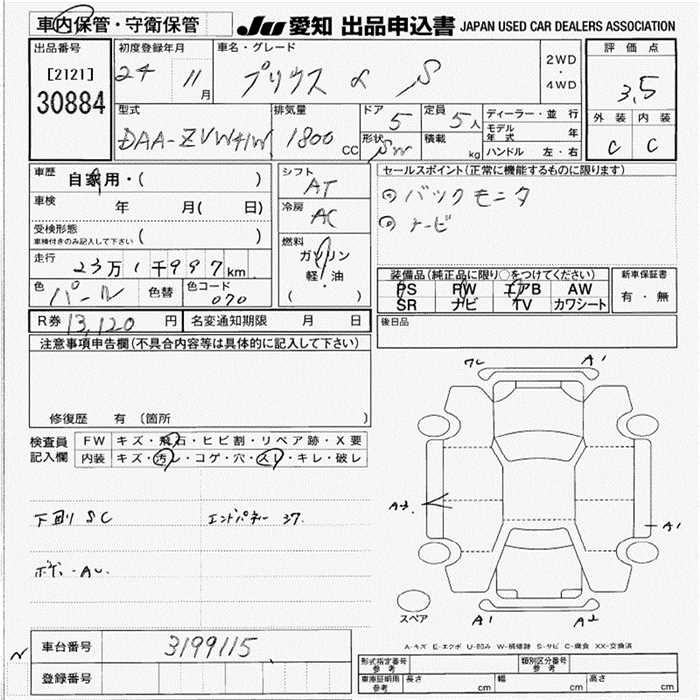 車内保管・守衛保管
JU 愛知 出品申込書 JAPAN USED CAR DEALERS ASSOCIATION
出品番号
[2121]
30884
初度登録年月
24 11月
車名・グレード
プリウス α S
2WD
・
4WD
評価点
3.5
外装 内装
C C
型式
DAA-ZVW41W
排気量
1800 CC
ドア 5
形状 SW
定員 5人
積載 kg
ディーラー・並行
モデル年式 年
ハンドル 左・右
車歴 自家用・( )
車検 年 月( 日)
受検形態
車検付きのみ記入して下さい ( )
走行 23万1千997km
色 パール 色替 色コード 070
シフト AT
冷房 AC
燃料
ガソリン
軽・油
( )
セールスポイント(正常に機能するものに限ります)
バックモニタ
ナビ
装備品(純正品に限り○をつけてください)
PS PW エアB AW
SR ナビ TV カワシート
新車保証書
有・無
後日品
R券 13,120円 名変通知期限 月 日
注意事項申告欄(不具合内容等は具体的に記入して下さい)
修復歴 有 (箇所 )
検査員記入欄
FW キズ・飛石・ヒビ割・リペア跡・X要
内装 キズ・汚レ・コゲ・穴・スレ・キレ・破レ
下廻 SC
A1
A1
A1 A2
スペア
A-キズ E-エクボ U-凹み W-補修跡 S-サビ C-腐食 XX-交換済
車台番号 3199115
登録番号
N
型式指定番号 参考
類別区分番号 参考
車庫証明用 参考 長さ cm 幅 cm 高さ cm